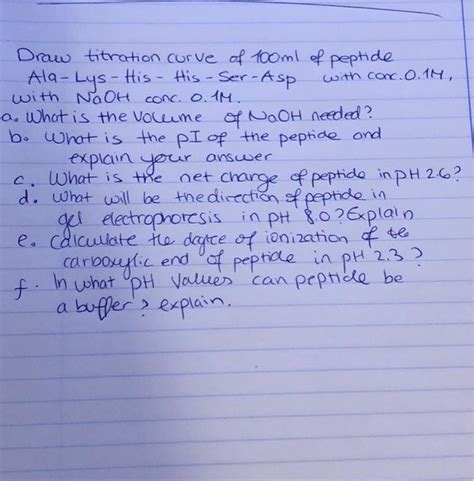 Draw titration curve of 100ml of peptide
Ala-Lys-His-His-Ser-Asp with conc. 0.1M,
with NaOH conc. 0.1M.
a. What is the volume of NaOH needed?
b. What is the pI of the peptide and
explain your answer
c. What is the net charge of peptide in pH 2.6?
d. What will be the direction of peptide in
gel electrophoresis in pH 8.0? Explain
e. calculate the dagree of ionization of te
carboxylic end of peptide in pH 2.3?
f. In what pH values can peptide be
a buffer? explain.